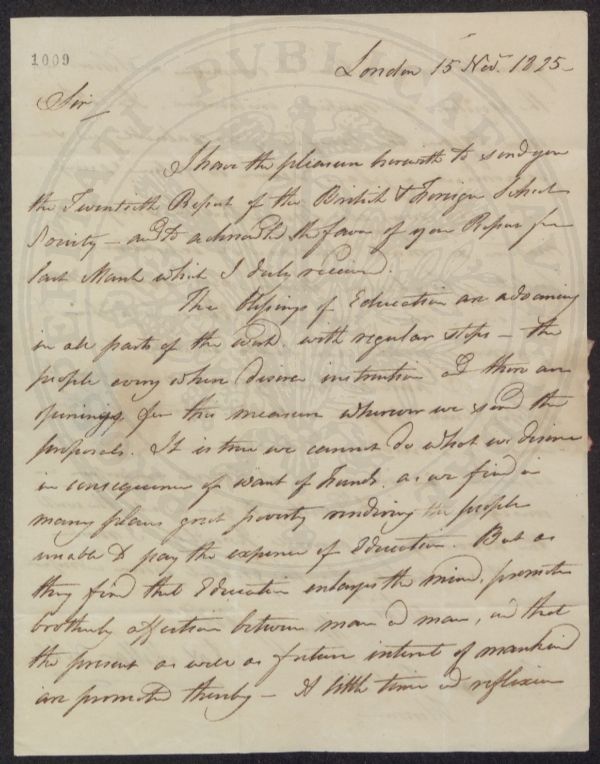 1009
London 15 Nov. 1825
Sir
I have the pleasure herewith to send you
the Twentieth Report of the British & Foreign School
Society – and to acknowle the favor of your Report for
last March which I duly received.
The Blessings of Education are advancing
in all parts of the world with regular steps – the
people every where desire instruction and there are
openings for this measure wherever we send the
proposals. It is true we cannot do what we desire
in consequence of want of Funds, as we find in
many places great poverty rendering the people
unable to pay the expence of Education. But as
they find that Education enlarges the mind, promotes
brotherly affection between man and man, and that
the present as well as future interest of mankind
are promoted thereby – A little time and reflexion